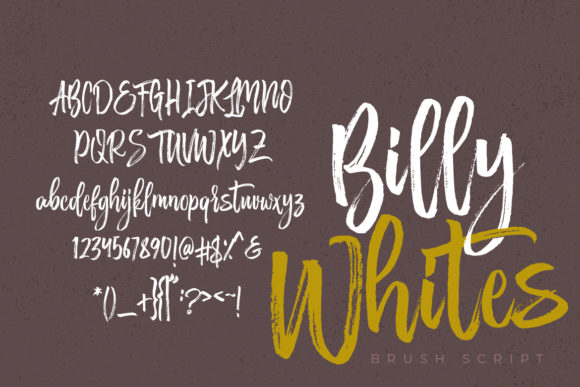 ABCDEFGHIJKLMNO
PQRSTUVWXYZ
abcdefghijklmnopqrstuvwxyz
1234567890!@#$%^&
*()_+{}|":?><~!
Billy
Whites
BRUSH SCRIPT